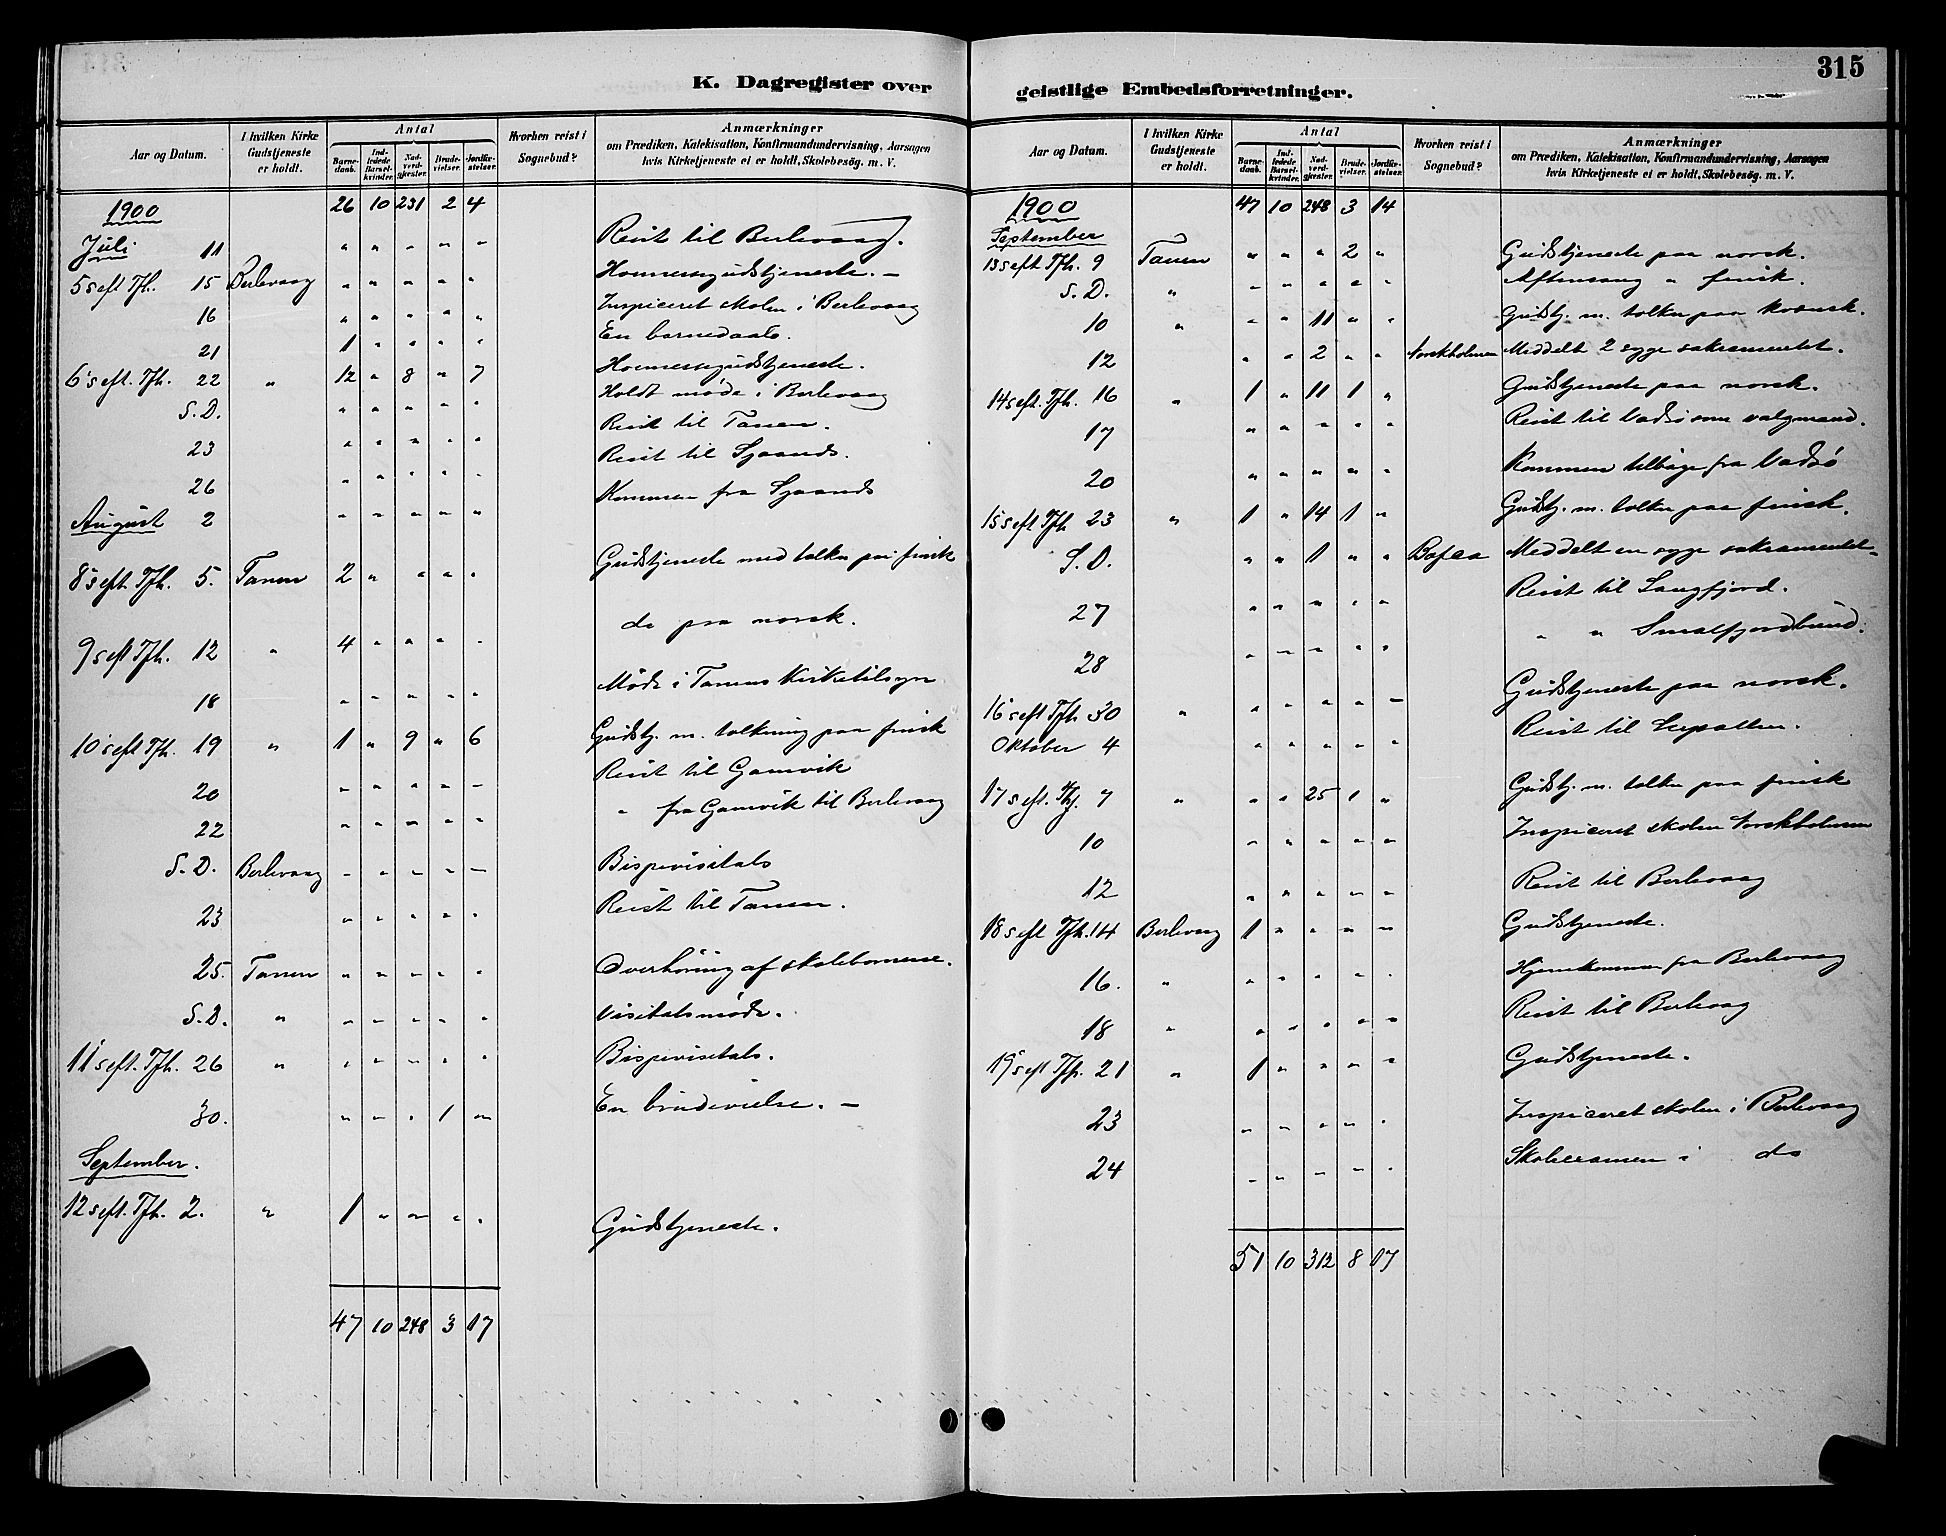 K. Dagregister over
Aar og Datum.
I hvilken Kirke Gudstjeneste er holdt.
Antal
Barnedaab.
Indledede Barselkvinder.
Nadverdgjester.
Brudevielser.
Jordfæstelser.
Hvorhen reist i Sognebud?
Anmærkninger
om Prædiken, Katekisation, Konfirmandundervisning, Aarsagen
hvis Kirketjeneste ei er holdt, Skolebesög. m. V.
1900 26 10 231 2 4
Juli 11 " " " " " Reist til Berlevaag.
5 s eft Tfh. 15 Berlevaag " " " " " Hovmessegudstjeneste. –
16 " " " " " Inspiceret skolen i Berlevaag
21 1 " " " " En barnedaab.
6 s eft. Tfh. 22 " 12 " 8 " 7 Hovmessegudstjeneste.
S.D. " " " " " Holdt møde i Berlevaag
23 " " " " " Reist til Tanen.
26 " " " " " Reist til
August 2 " " " " " Kommen fra
8 s eft. Tfh. 5. Tanen 2 " " " " Gudstjeneste med tolk paa finsk
9 s eft Tfh. 12 " 4 " " " " do paa norsk.
18 " " " " " Møde i Tanens Kirketilsyn
10 s eft Tfh. 19 " 1 " 9 " 6 Gudstj. m. tolkning paa finsk
20 " " " " " Reist til Gamvik
22 " " " " " " fra Gamvik til Berlevaag
S.D. Berlevaag " " " " " Bispevisitats
23 " " " " " Reist til Tanen.
25. Tanen " " " " " Overhöring af skolebornene.
S.D. " " " " " " Visitatsmøde.
11 s eft. Tfh. 26 " " " " " " Bispevisitats.
30. " " " 1 " En brudevielse. –
September.
12 s eft. Tfh. 2. " 1 " " " " Gudstjeneste.
47 10 248 3 17
315
geistlige Embedsforretninger.
Aar og Datum.
I hvilken Kirke Gudstjeneste er holdt.
Antal
Barnedaab.
Indledede Barselkvinder.
Nadverdgjester.
Brudevielser.
Jordfæstelser.
Hvorhen reist i Sognebud?
Anmærkninger
om Prædiken, Katekisation, Konfirmandundervisning, Aarsagen
hvis Kirketjeneste ei er holdt, Skolebesög. m. V.
1900 47 10 248 3 14
September
13 s eft Tfh. 9 Tanen " " " 2 " Gudstjeneste paa norsk.
S.D. " " " " " " Aftensang " finsk.
10 " " " 11 " " Gudstj. m. tolk paa kvænsk.
12 " " 2 " " Torskholmen Meddelt 2 syge sakramentet.
14 s eft. Tfh. 16 " 1 " 11 1 " Gudstjeneste paa norsk.
17 " " " " " Reist til Vadsö som valgmand.
20 " " " " " Kommen tilbage fra Vadsö
15 s eft Tfh 23 " 1 " 14 1 " Gudstj. m. tolk paa finsk.
S.D. " " 1 " " Meddelt en syge sakramentet.
27 " " " " " Reist til Langfjord.
28 " " " " " " " Smalfjordbund.
16 s eft Tfh 30 " " " " " " Gudstjeneste paa norsk.
Oktober 4 " " " " " Reist til
17 s eft. Tfh. 7 " " " 25 1 " Gudstj. m. tolk paa finsk
10 " " " " " Inspiceret skolen Torskholmen
12 " " " " " Reist til Berlevaag
18 s eft Tfh. 14 Berlevaag 1 " " " " Gudstjeneste.
16. " " " " " " Hjemkommen fra Berlevaag
18 " " " " " " Reist til Berlevaag
19 s eft Tfh. 21 " 1 " " " " Gudstjeneste.
23 " " " " " Inspiceret skolen i Berlevaag
24 " " " " " Skoleexamen i do
51 10 312 8 17